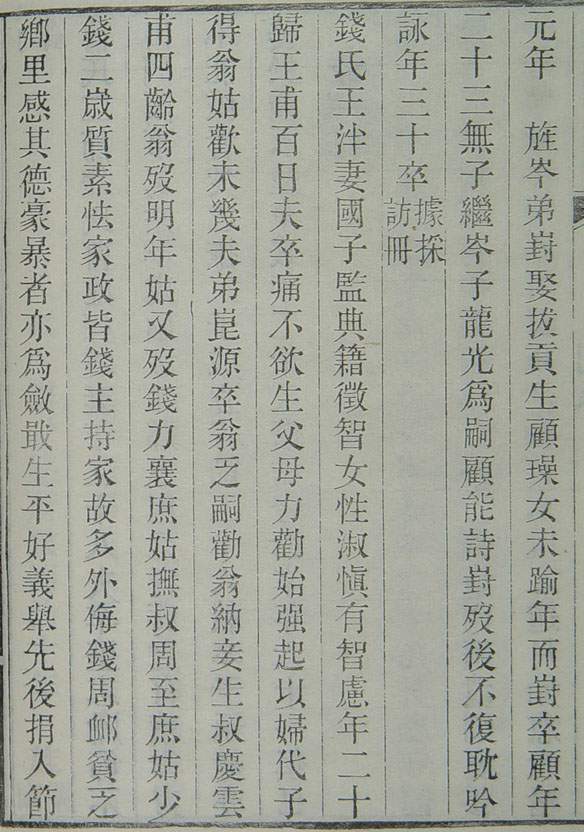 元年　旌岑弟崶娶拔貢生顧璪女未踰年而崶卒顧年
二十三無子繼岑子龍光爲嗣顧能詩崶歿後不復耽吟
詠年三十卒據採訪冊
錢氏王泮妻國子監典籍徵智女性淑愼有智慮年二十
歸王甫百日夫卒痛不欲生父母力勸始强起以婦代子
得翁姑歡未幾夫弟崑源卒翁乏嗣勸翁納妾生叔慶雲
甫四齡翁歿明年姑又歿錢力襄庶姑撫叔周至庶姑少
錢二歲質素怯家政皆錢主持家故多外侮錢周䘏貧乏
鄉里感其德豪暴者亦爲斂戢生平好義舉先後捐入節